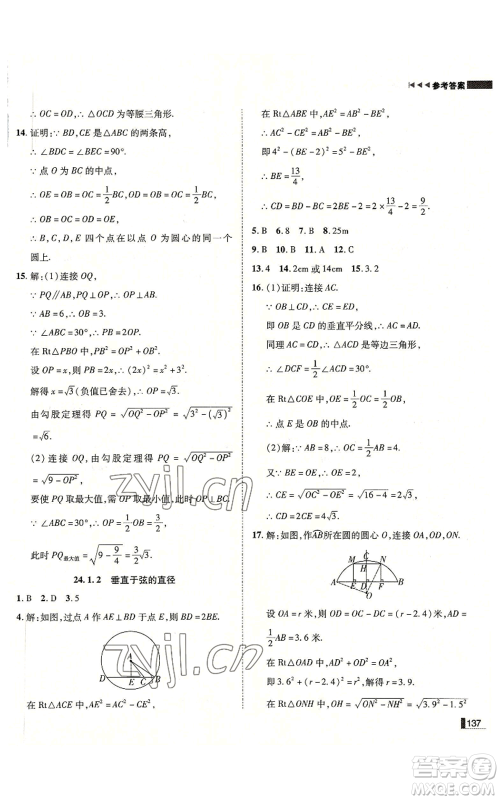 参考答案
∴ OC = OD,∴ △OCD 为等腰三角形.
14. 证明:∵ BD,CE 是 △ABC 的两条高,
∴ ∠BDC = ∠BEC = 90°.
∵ 点 O 为 BC 的中点,
∴ OE = OB = OC = 1/2 BC,OD = OB = OC = 1/2 BC,
∴ OB = OC = OD = OE,
∴ B,C,D,E 四个点在以点 O 为圆心的同一个
圆上.
15. 解:(1)连接 OQ,
∵ PQ∥AB,OP⊥PQ,∴ OP⊥AB.
∵ ∠ABC = 30°,∴ OB = 2OP.
在 Rt△PBO 中,PB² + OP² = OB².
设 OP = x,则 PB² = (2x)² - x² = 3²,
解得 x = √3(负值已舍去),∴ OP = √3.
由勾股定理得 PQ = √(OQ² - OP²) = √(3² - (√3)²)
= √6.
(2)连接 OQ,由勾股定理得 PQ = √(OQ² - OP²)
= √(9 - OP²),
要使 PQ 取最大值,需 OP 取最小值,
此时 OP⊥BC.
∵ ∠ABC = 30°,∴ OP = 1/2 OB = 3/2,
此时 PQ最大值 = √(9 - 9/4) = 3/2 √3.
24.1.2 垂直于弦的直径
1. B 2. D 3. 5
4. 解:如图,过点 A 作 AE⊥BD 于点 E,则 BD = 2BE.
A
D E C B
在 Rt△ACE 中,AE² = AC² - CE²,
在 Rt△ABE 中,AE² = AB² - BE²,
∴ AC² - CE² = AB² - BE²,
即 4² - (2 - BE)² = 5² - BE²,
∴ BE = 13/4,
∴ CD = BD - BC = 2BE - 2 = 2×13/4 - 2 = 9/2.
5. B 6. 8 7. B 8. 25m
9. B 10. B 11. A 12. C
13. 4 14. 2cm 或 14cm 15. 3. 2
16. (1)证明:连接 AC.
∵ OB⊥CD,∴ OB 是 CD 的垂直平分线,
∴ AC = AD.
同理 AC = CD,∴ △ACD 是等边三角形,
∴ ∠DCF = 1/2 ∠ACD = 30°.
在 Rt△COE 中,OE = 1/2 OC,∴ OE = 1/2 OB,
∴ 点 E 是 OB 的中点.
(2)解:∵ AB = 8,∴ OC = 1/2 AB = 4.
又∵ BE = OE,∴ OE = 2,
∴ CE = √(OC² - OE²) = √(16 - 4) = 2√3,
∴ CD = 2CE = 4√3.
17. 解:如图,作AB所在圆的圆心 O,连接 OA,ON.
C
M H N
A D B
O
设 OA = r,则 OD = OC - DC = r - 2,AD =
1/2 AB = 3. 6,
在 Rt△OAD 中,OA² = AD² + OD²,
即 3. 6² + (r - 2)² = r²,解得 r = 3. 9.
在 Rt△ONH 中,OH = √(ON² - NH²) = √(3. 9² - 1. 5²)
137
zyjl.cn
zyjl.cn